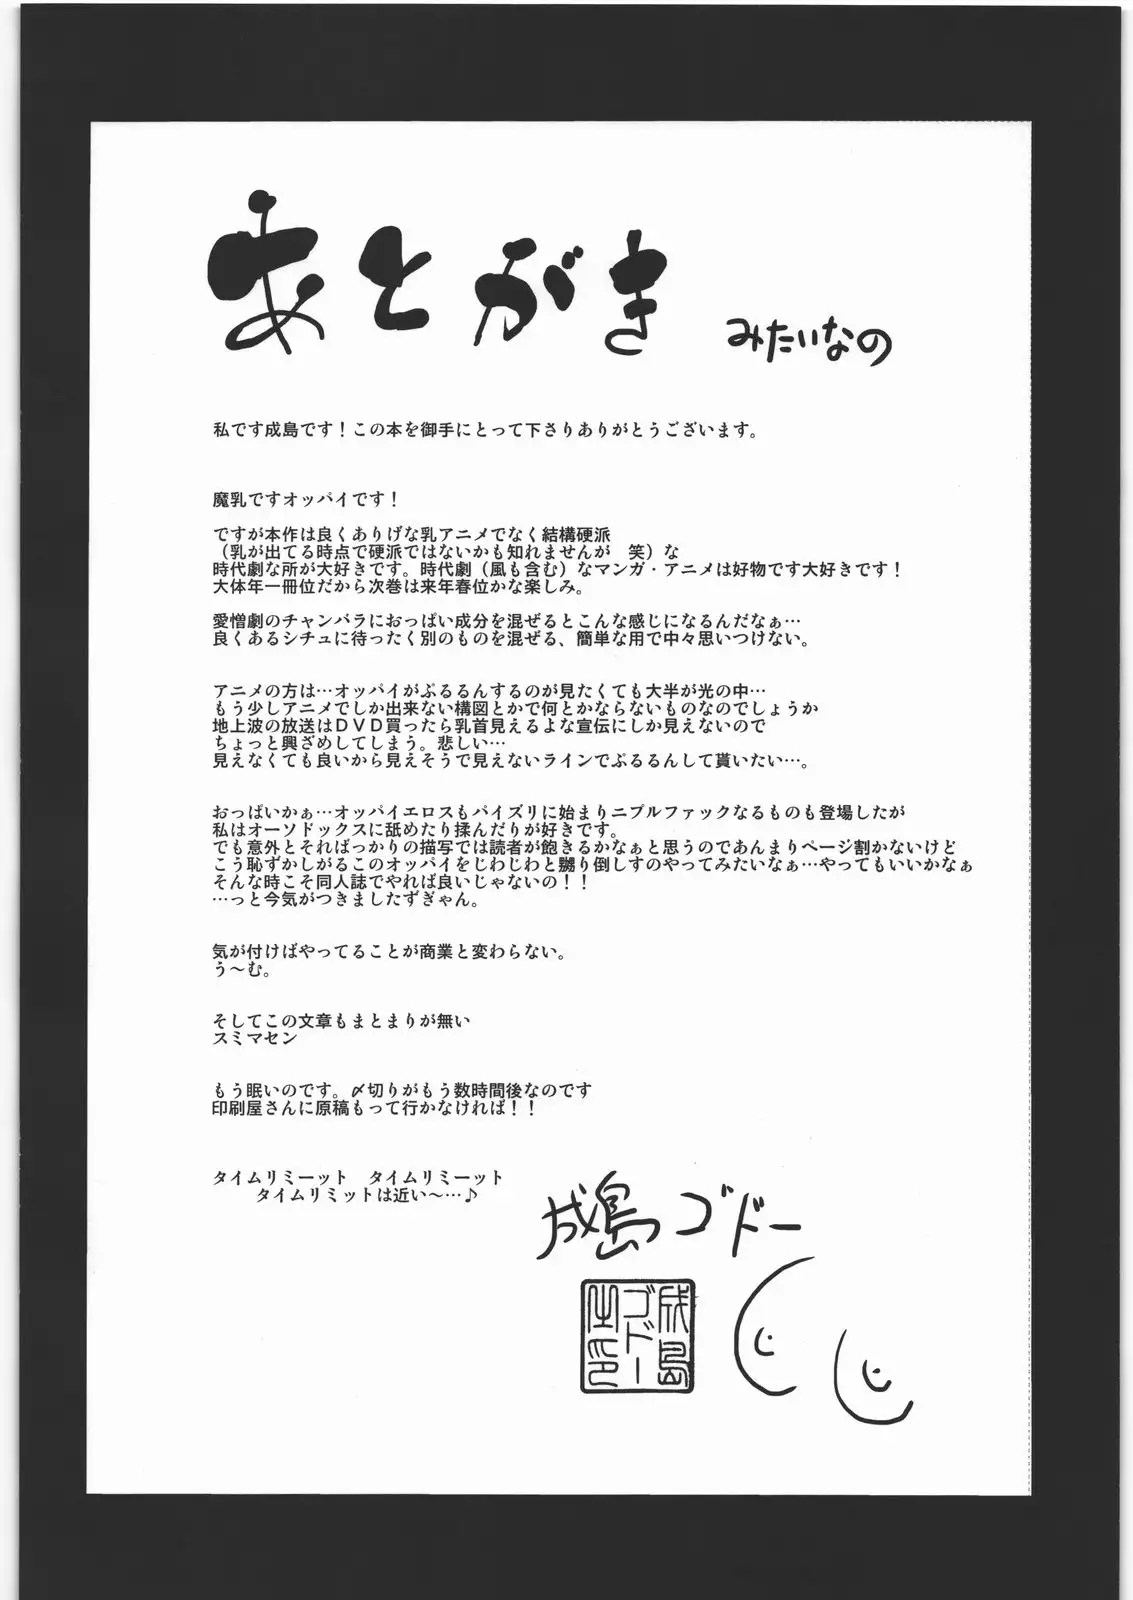 あとがき みたいなの
私です成島です！この本を御手にとって下さりありがとうございます。
魔乳ですオッパイです！
ですが本作は良くありげな乳アニメでなく結構硬派
（乳が出てる時点で硬派ではないかも知れませんが　笑）な
時代劇な所が大好きです。時代劇（風も含む）なマンガ・アニメは好物です大好きです！
大体年一冊位だから次巻は来年春位かな楽しみ。
愛憎劇のチャンバラにおっぱい成分を混ぜるとこんな感じになるんだなぁ…
良くあるシチュに待ったく別のものを混ぜる、簡単な用で中々思いつけない。
アニメの方は…オッパイがぶるるんするのが見たくても大半が光の中…
もう少しアニメでしか出来ない構図とかで何とかならないものなのでしょうか
地上波の放送はＤＶＤ買ったら乳首見えるよな宣伝にしか見えないので
ちょっと興ざめしてしまう。悲しい…
見えなくても良いから見えそうで見えないラインでぷるるんして貰いたい…。
おっぱいかぁ…オッパイエロスもパイズリに始まりニプルファックなるものも登場したが
私はオーソドックスに舐めたり揉んだりが好きです。
でも意外とそればっかりの描写では読者が飽きるかなぁと思うのであんまりページ割かないけど
こう恥ずかしがるこのオッパイをじわじわと嬲り倒しすのやってみたいなぁ…やってもいいかなぁ
そんな時こそ同人誌でやれば良いじゃないの！！
…っと今気がつきましたずぎゃん。
気が付けばやってることが商業と変わらない。
う～む。
そしてこの文章もまとまりが無い
スミマセン
もう眠いのです。〆切りがもう数時間後なのです
印刷屋さんに原稿もって行かなければ！！
タイムリミーット　タイムリミーット
タイムリミットは近い～…♪
成島ゴドー
成島ゴドー之印